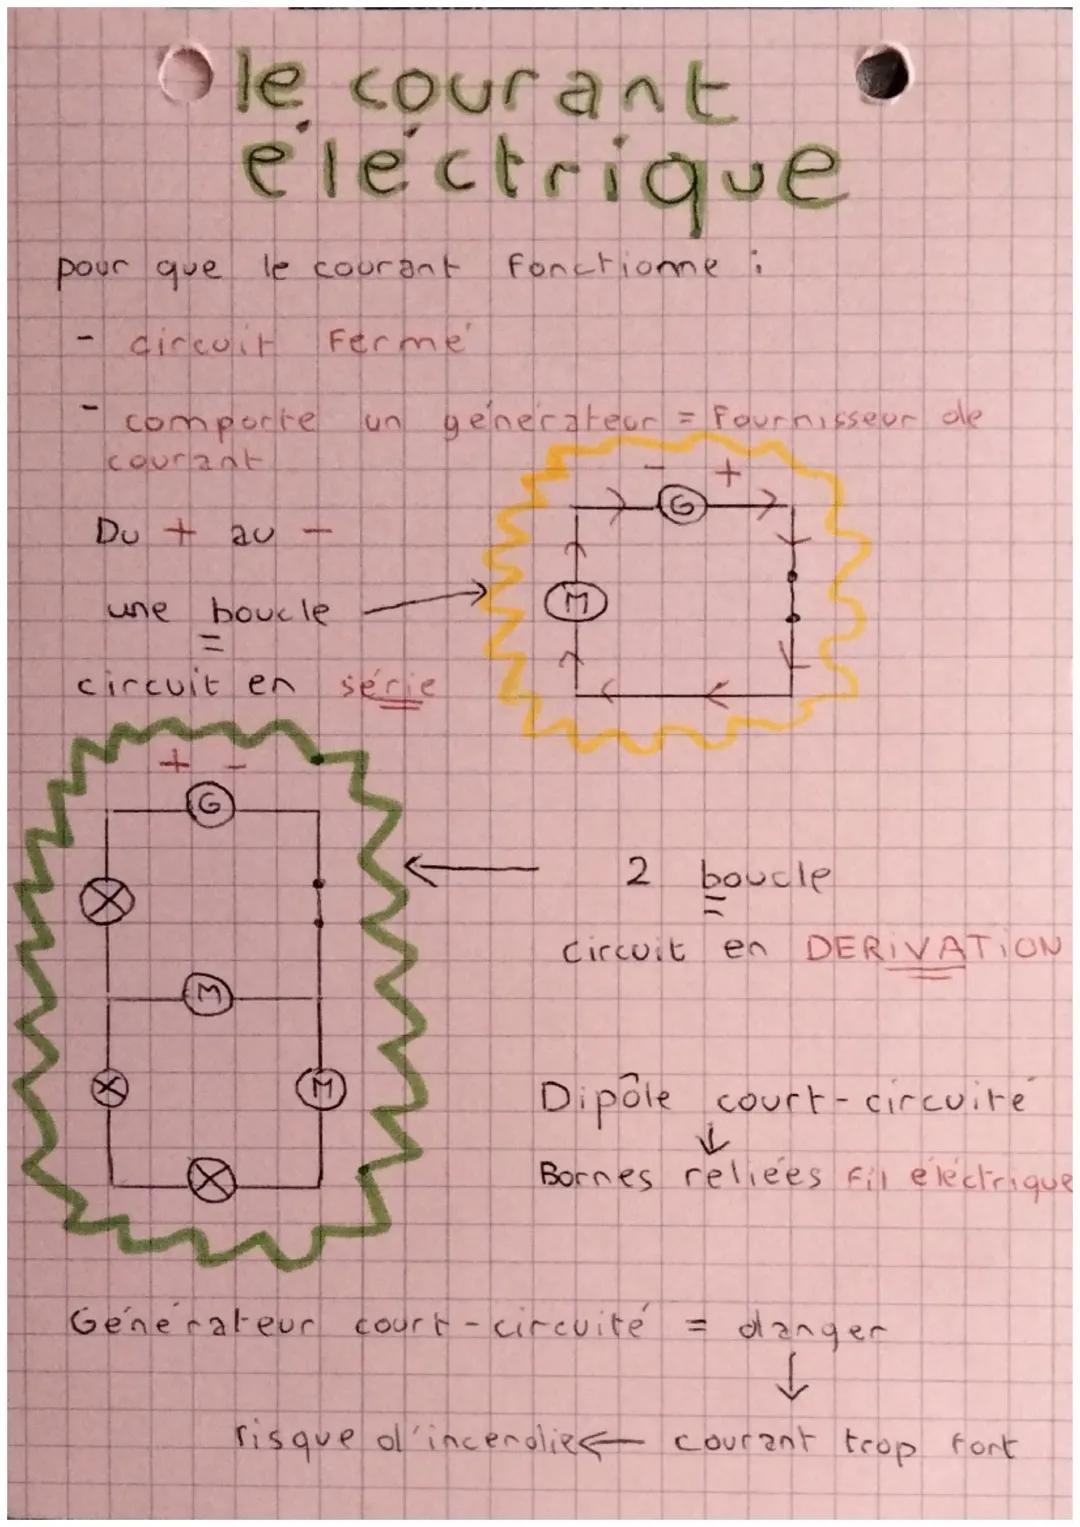 le courant
éléctrique
pour que le courant fonctionne :
- circuit Fermé
- comporte un générateur = Fournisseur de
courant
- +
G
M
Du + au -
une boucle
=
circuit en série
+ -
G
M
M
2 boucle
=
circuit en DERIVATION
Dipôle court-circuité
↓
Bornes reliées Fil éléctrique
Générateur court-circuité = danger
↓
risque d'incendie ← courant trop fort